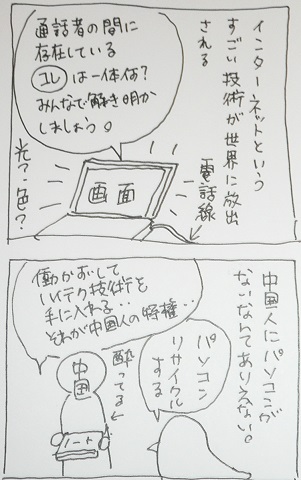 インターネットという
すごい技術が世界に放出
される
通話者の間に
存在している
コレは一体何?
みんなで解き明か
しましょう。
電話線
画面
光?色?
中国人にパソコンが
ないなんてありえない。
働かずして
ハイテク技術を
手に入れる‥
それが中国人の特権‥
パソコン
リサイクル
する
酔ってる
中国
ノート